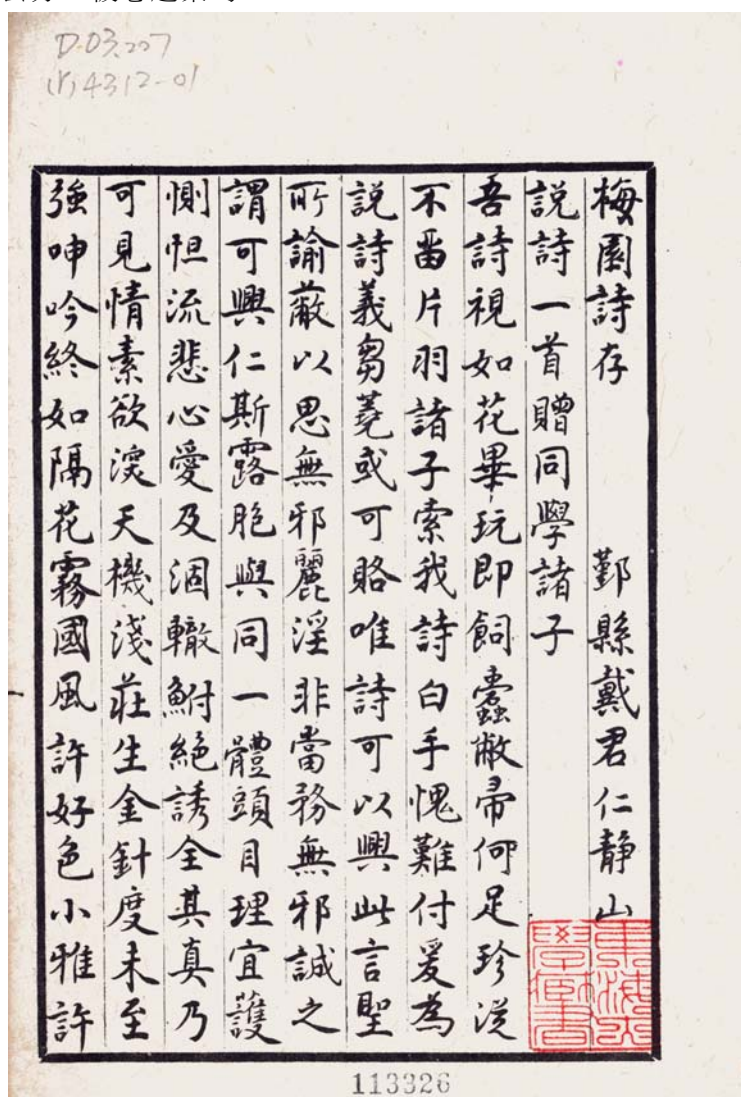 D.03.227
(r)4312-01
梅園詩存　鄞縣戴君仁靜山
說詩一首贈同學諸子
吾詩視如花畢玩即飼蠹敝帚何足珍從
不畱片羽諸子索我詩白手愧難付爰為
說詩義芻蕘或可賂唯詩可以興此言聖
所諭蔽以思無邪麗淫非當務無邪誠之
謂可興仁斯露胞與同一體頭目理宜護
惻怛流悲心愛及涸轍鮒絕誘全其真乃
可見情素欲深天機淺莊生金針度未至
強呻吟終如隔花霧國風許好色小雅許
東海大學藏書
113326